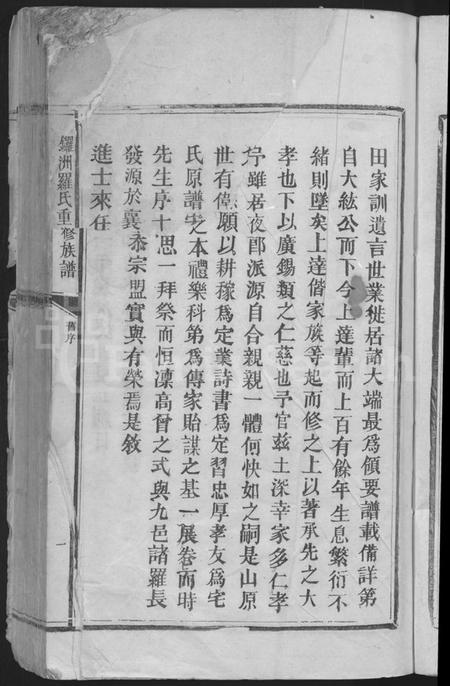 田家訓遺言世業徙居諸大端最爲領要譜載備詳第
自大紘公而下今上達輩而上百有餘年生息繁衍不
緒則墜矣上達偕家族等起而修之上以著承先之大
孝也下以廣錫類之仁慈也予官兹土深幸家多仁孝
雖居夜郎派源自合親親一體何快如之嗣是山原
世有偉願以耕稼爲定業詩書爲定習忠厚孝友爲宅
氏原譜之本禮樂科第爲傳家貽謀之基一展卷而時
先生序十思一拜祭而恒凜高曾之式與九邑諸羅長
發源於襄忝宗盟實與有榮焉是敘
進士來任
鑼洲羅氏重修族譜
舊序
一